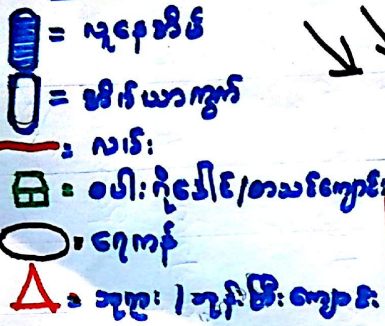 = လူနေအိမ်
= အိမ်ယာကွက်
= လမ်း
= စပါးဂိုဒေါင်/စာသင်ကျောင်း
= ရေကန်
= ဘုရား / ဘုန်းကြီးကျောင်း